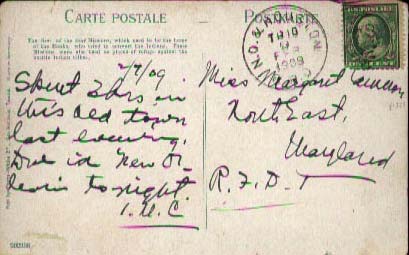 CARTE POSTALE
POSTKARTE
The view of the San
which used to be the home
of the Monks, who tried to convert the Indians. These
Missions were also used as places of refuge against the
hostile Indian tribes.
2/7/09
Spent 2 hrs in
this old town
last evening.
Due in New Or-
leans tonight.
I.M.C
Miss Margaret
North East,
Maryland
R.F.D. 1
1909